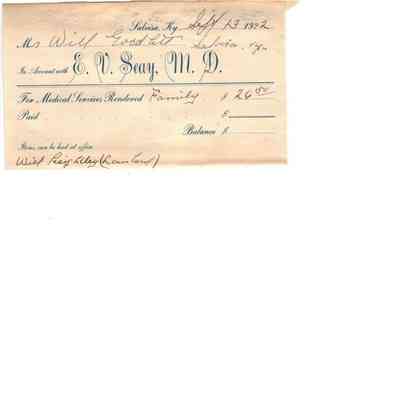 Salvisa, Ky. Sept 13 1892
Mr Will Goodlett Salvisa Ky.
In Account with E. V. Seay, M. D.
For Medical Services Rendered Family $ 26 50
Paid $
Balance $
Items can be had at office
Will